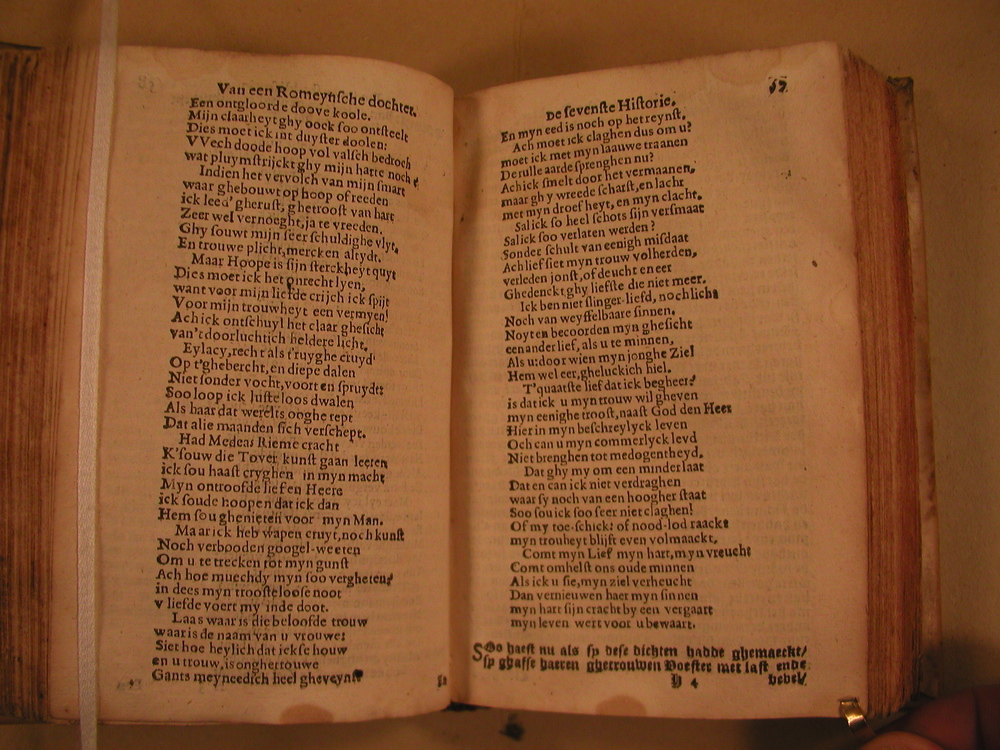 Van een Romeynsche dochter.
Een ontgloorde doove koole.
Mijn claarheyt ghy oock soo ontsteelt
Dies moet ick int duyster doolen:
VVech doode hoop vol valsch bedroch
wat pluymstrijckt ghy mijn harte noch?
Indien het vervolch van mijn smart
waar ghebouwt op hoop of reeden
ick leed' gherust, ghetroost van hart
Zeer wel vernoeght, ja te vreeden.
Ghy souwt mijn seer schuldighe vlyt,
En trouwe plicht, mercken altydt.
Maar Hoope is sijn sterckheyt quyt
Dies moet ick het onrecht lyen,
want voor mijn liefde crijch ick spijt
Voor mijn trouwheyt een vermyen!
Ach ick ontschuyl het claar ghesicht
van't doorluchtich heldere licht.
Eylacy, recht als t'ruyghe cruyd'
Op t'ghebercht, en diepe dalen
Niet sonder vocht, voort en spruydt:
Soo loop ick lusteloos dwalen
Als haar dat werelts ooghe rept
Dat alie maanden sich verschept.
Had Medeas Rieme cracht
K'souw die Tover kunst gaan leeren
ick sou haast cryghen in myn macht
Myn ontroofde lief en Heere
ick soude hoopen dat ick dan
Hem sou ghenieten voor myn Man.
Maar ick heb wapen cruyt, noch kunst
Noch verbooden googel-weeten
Om u te trecken tot myn gunst
Ach hoe muechdy myn soo vergheten?
in dees myn troosteloose noot
v liefde voert my inde doot.
Laas waar is die beloofde trouw
waar is de naam van u vrouwe?
Siet hoe heylich dat ickse houw
en u trouw, is onghetrouwe
Gants meyneedich heel gheveynst
De sevenste Historie.
57
En myn eed is noch op het reynst,
Ach moet ick claghen dus om u?
moet ick met myn laauwe traanen
De rulle aarde sprenghen nu?
Ach ick smelt door het vermaanen,
maar ghy wreede schatst, en lacht
met myn droefheyt, en myn clacht,
Sal ick so heel schots sijn versmaat
Sal ick soo verlaten werden?
Sonder schult van eenigh misdaat
Ach lief siet myn trouw volherden,
verleden jonst, of deucht en eer
Ghedenckt ghy liefste die niet meer.
Ick ben niet slinger-liefd, noch licht
Noch van weyffelbaare sinnen,
Noyt en becoorden myn ghesicht
een ander lief, als u te minnen,
Als u: door wien myn jonghe Ziel
Hem wel eer, gheluckich hiel.
T'quaatste lief dat ick begheer?
is dat ick u myn trouw wil gheven
myn eenighe troost, naast God den Heer
Hier in myn beschreylyck leven
Och can u myn commerlyck leyd
Niet brenghen tot medogentheyd.
Dat ghy my om een minder laat
Dat en can ick niet verdraghen
waar sy noch van een hoogher staat
Soo sou ick soo seer niet claghen!
Of my toe-schick: of nood-lod raackt
myn trouheyt blijft even volmaackt,
Comt myn Lief myn hart, myn vreucht
Comt omhelst ons oude minnen
Als ick u sie, myn ziel verheucht
Dan vernieuwen haer myn sinnen
myn hart sijn cracht by een vergaart
myn leven wert voor u bewaart.
SOo haest nu als sy dese dichten hadde ghemaeckt/
sy ghaffe haeren ghetrouwen Voester met last ende
H 4 bebel/